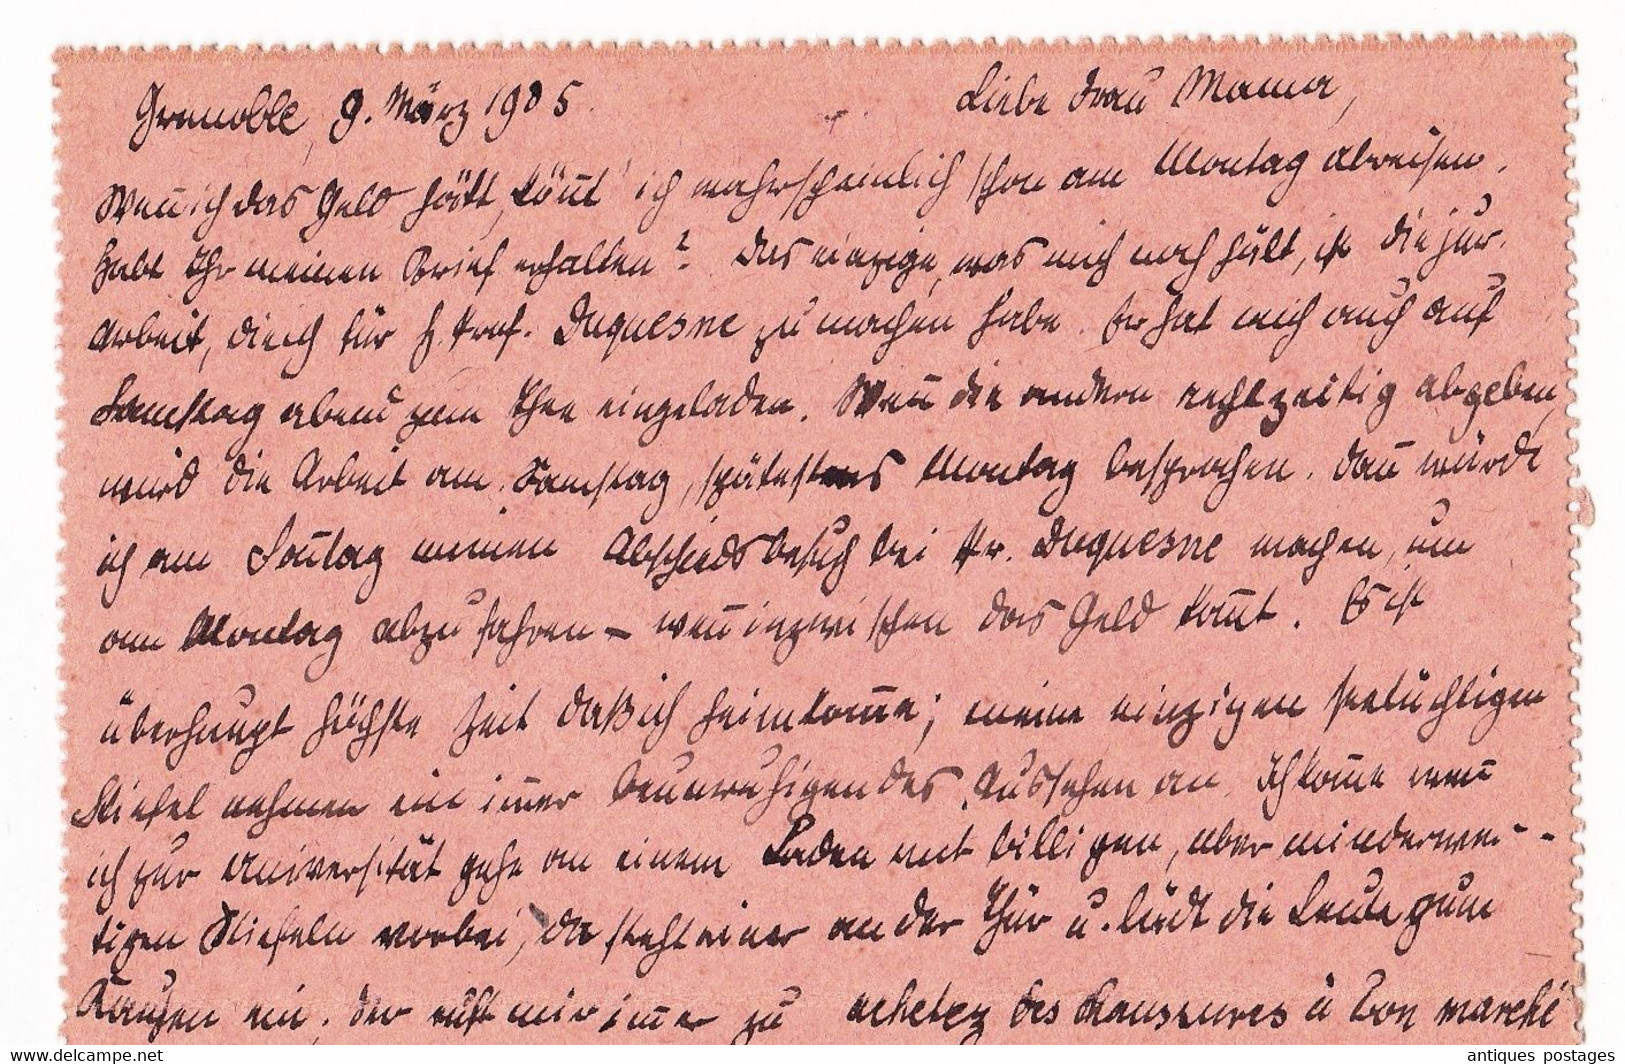 Grenoble, 9. März 1905. Liebe Frau Mama,
Wen̄ ich das Geld hätt, kön̄t' ich wahrscheinlich schon am Montag abreisen.
Habt Ihr meinen Brief erhalten? Das einzige, was mich noch hält, ist die jur.
Arbeit, die ich für H. Prof. Duquesne zu machen habe. Er hat mich auch auf
Samstag abend zum Thee eingeladen. Wen̄ die andern rechtzeitig abgeben,
wird die Arbeit am Samstag, spätestens Montag besprochen. Dan̄ würde
ich am Son̄tag meinen Abschiedsbesuch bei Hr. Duquesne machen, um
am Montag abzufahren – wen̄ inzwischen das Geld kom̄t. Es ist
überhaupt höchste Zeit daß ich heimkom̄e; meine einzigen
Stiefel nehmen ein im̄er beunruhigendes Aussehen an. Ich kom̄e wen̄
ich zur Universität gehe an einem Laden mit billigen, aber minderwer-
tigen Stiefeln vorbei, da steht einer an der Thür u. lädt die Leute zum
Kaufen ein, der ruft mir im̄er zu achetez des chaussures à bon marché
antiques postages
delcampe.net